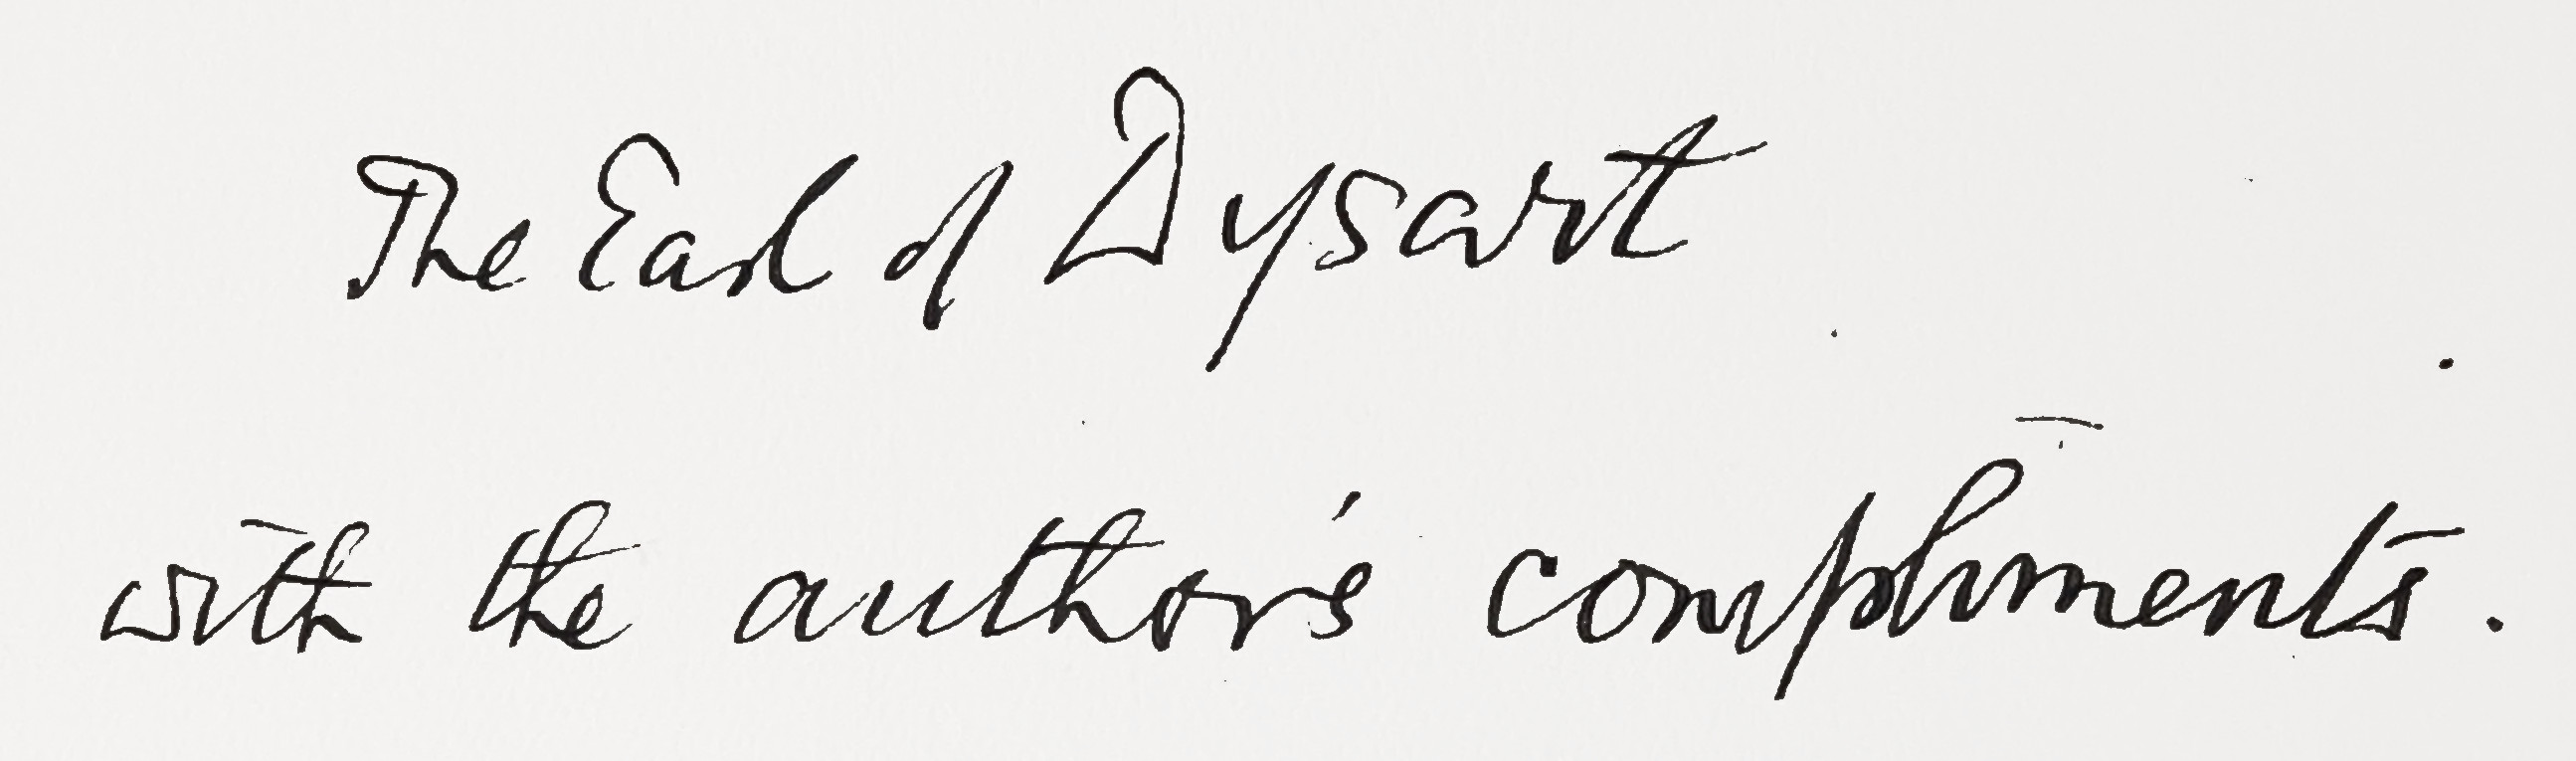 The Earl of Dysart
with the author's compliments.